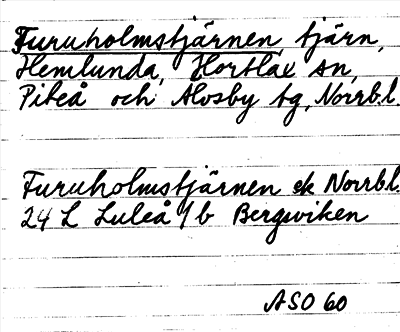 Furuholmstjärnen, tjärn,
Hemlunda, Hortlax sn,
Piteå och Älvsby tg, Norrb.l.
Furuholmstjärnen ek Norrb.l.
24 L Luleå 1/b Bergsviken
ASO 60